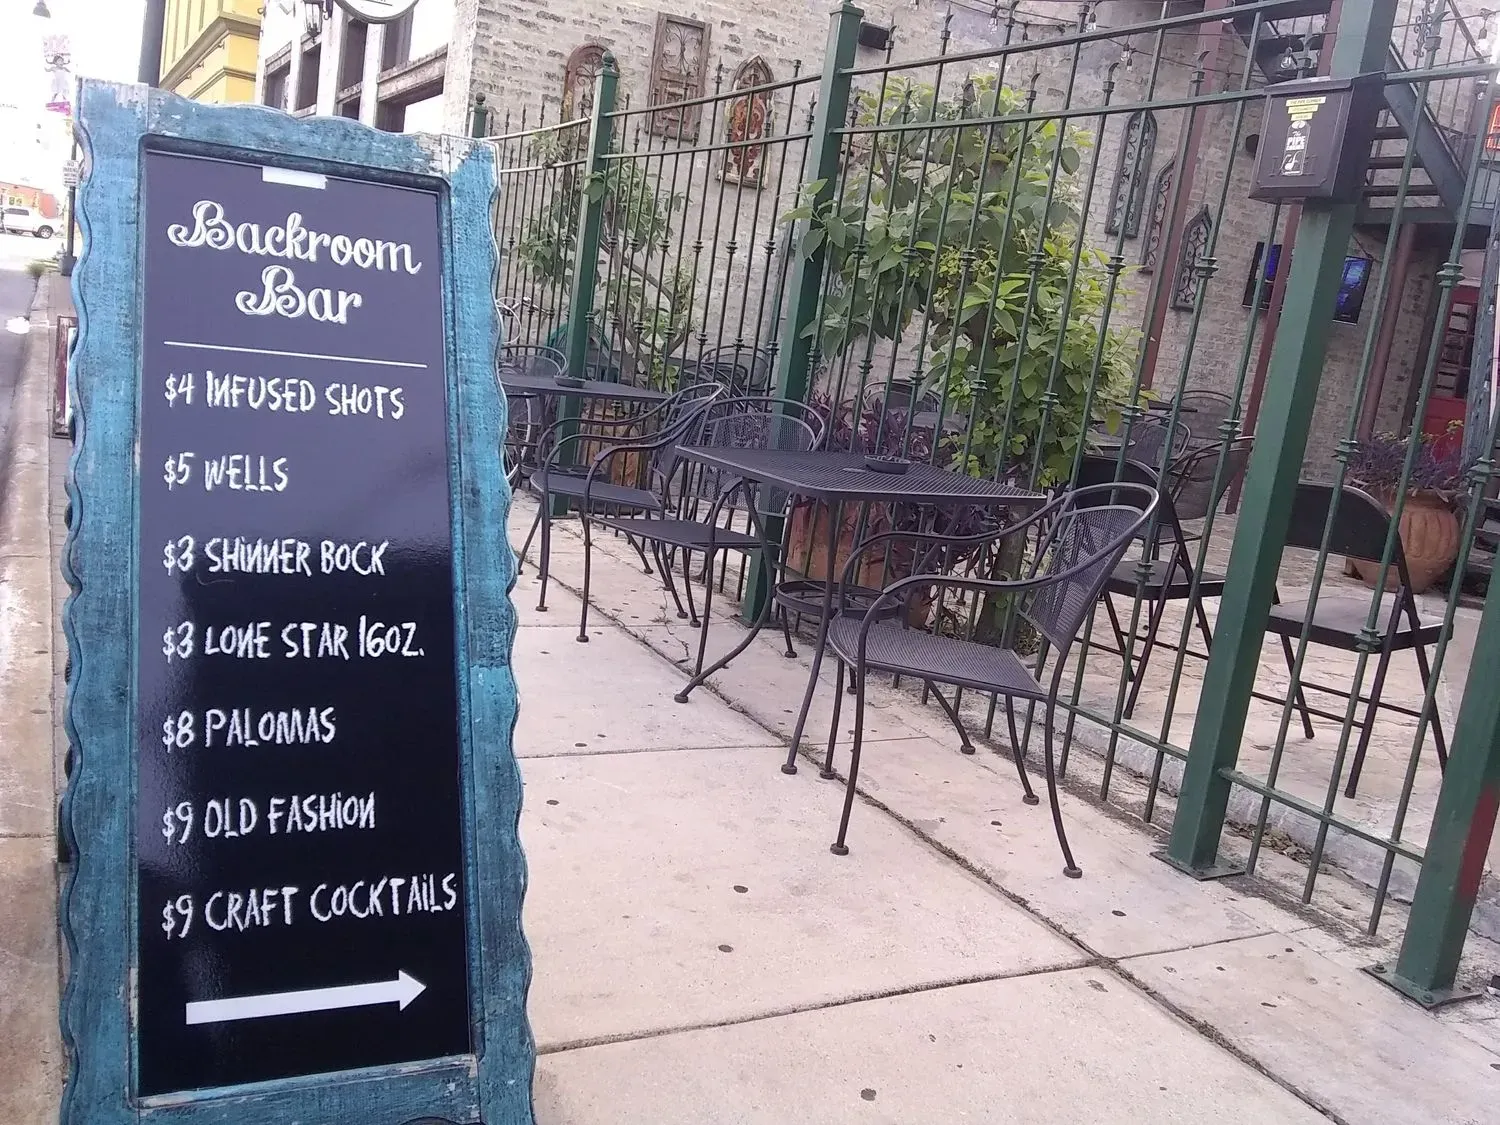 Backroom
Bar
$4 INFUSED SHOTS
$5 WELLS
$3 SHINNER BOCK
$3 LONE STAR 16OZ.
$8 PALOMAS
$9 OLD FASHION
$9 CRAFT COCKTAILS
The
PIPE